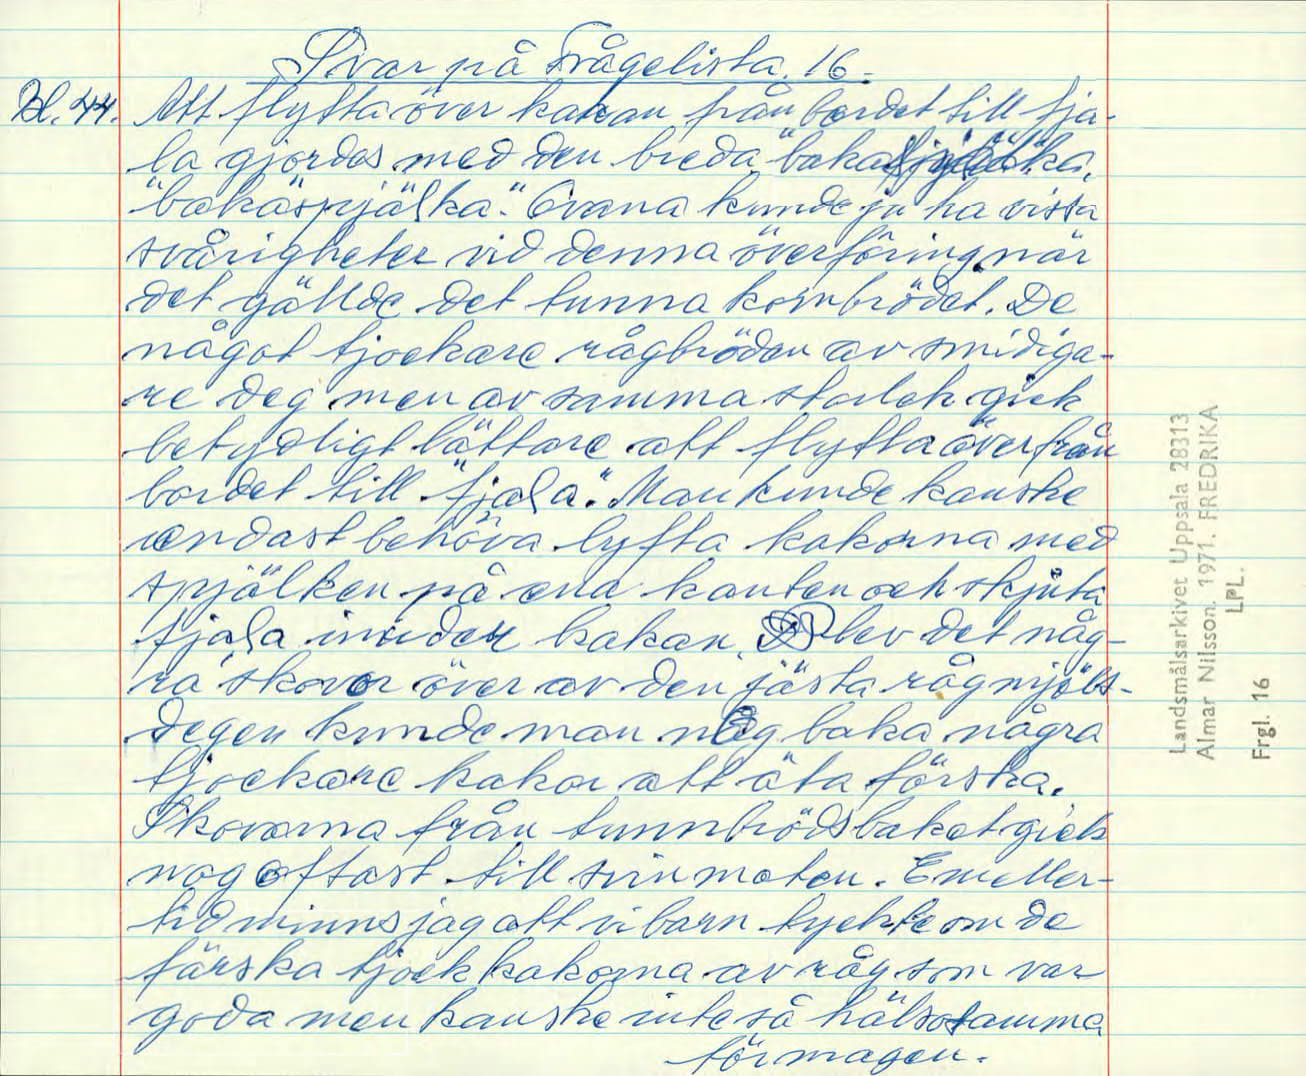 Svar på Frågelista. 16.
Bl. 44. Att flytta över kakan från bordet till fja-
la gjordes med den breda "baka
"bakaspjälka". Ovana kunde ju ha vissa
svårigheter vid denna överföring när
det gällde det tunna kornbrödet. De
något tjockare rågbröden av smidiga-
re deg men av samma storlek gick
betydligt lättare att flytta över från
bordet till "fjala". Man kunde kanske
endast behöva lyfta kakorna med
spjälken på ena kanten och skjuta
fjala in under kakan. Blev det någ-
ra skovor över av den jästa rågmjöls-
degen kunde man nog baka några
tjockare kakor att äta färska.
Skovorna från tunnbrödsbaket gick
nog oftast till svinmaten. Emeller-
tid minns jag att vi barn tyckte om de
färska tjockkakorna av råg som var
goda men kanske inte så hälsosamma
för magen.
Landsmålsarkivet Uppsala 28313
Almar Nilsson. 1971. FREDRIKA
LPL.
Frgl. 16